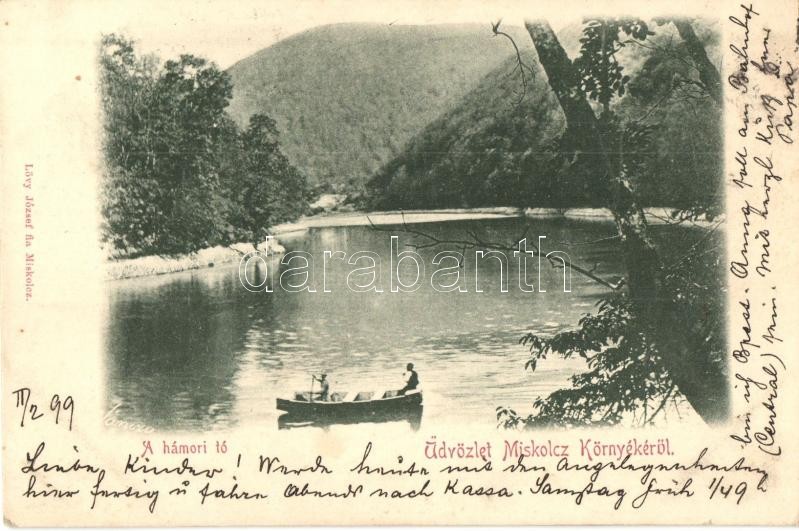 Lövy József fia Miskolcz.
darabanth
A hámori tó
Üdvözlet Miskolcz Környékéről.
III/2 99
Liebe Kinder! Werde heute mit den Angelegenheiten
hier fertig u fahre Abends nach Kassa. Samstag früh 1/49 h
bin ich Bpest. Anny soll am Bahnhof
(Central) sein. Mit herzl Kuß Euer
Papa